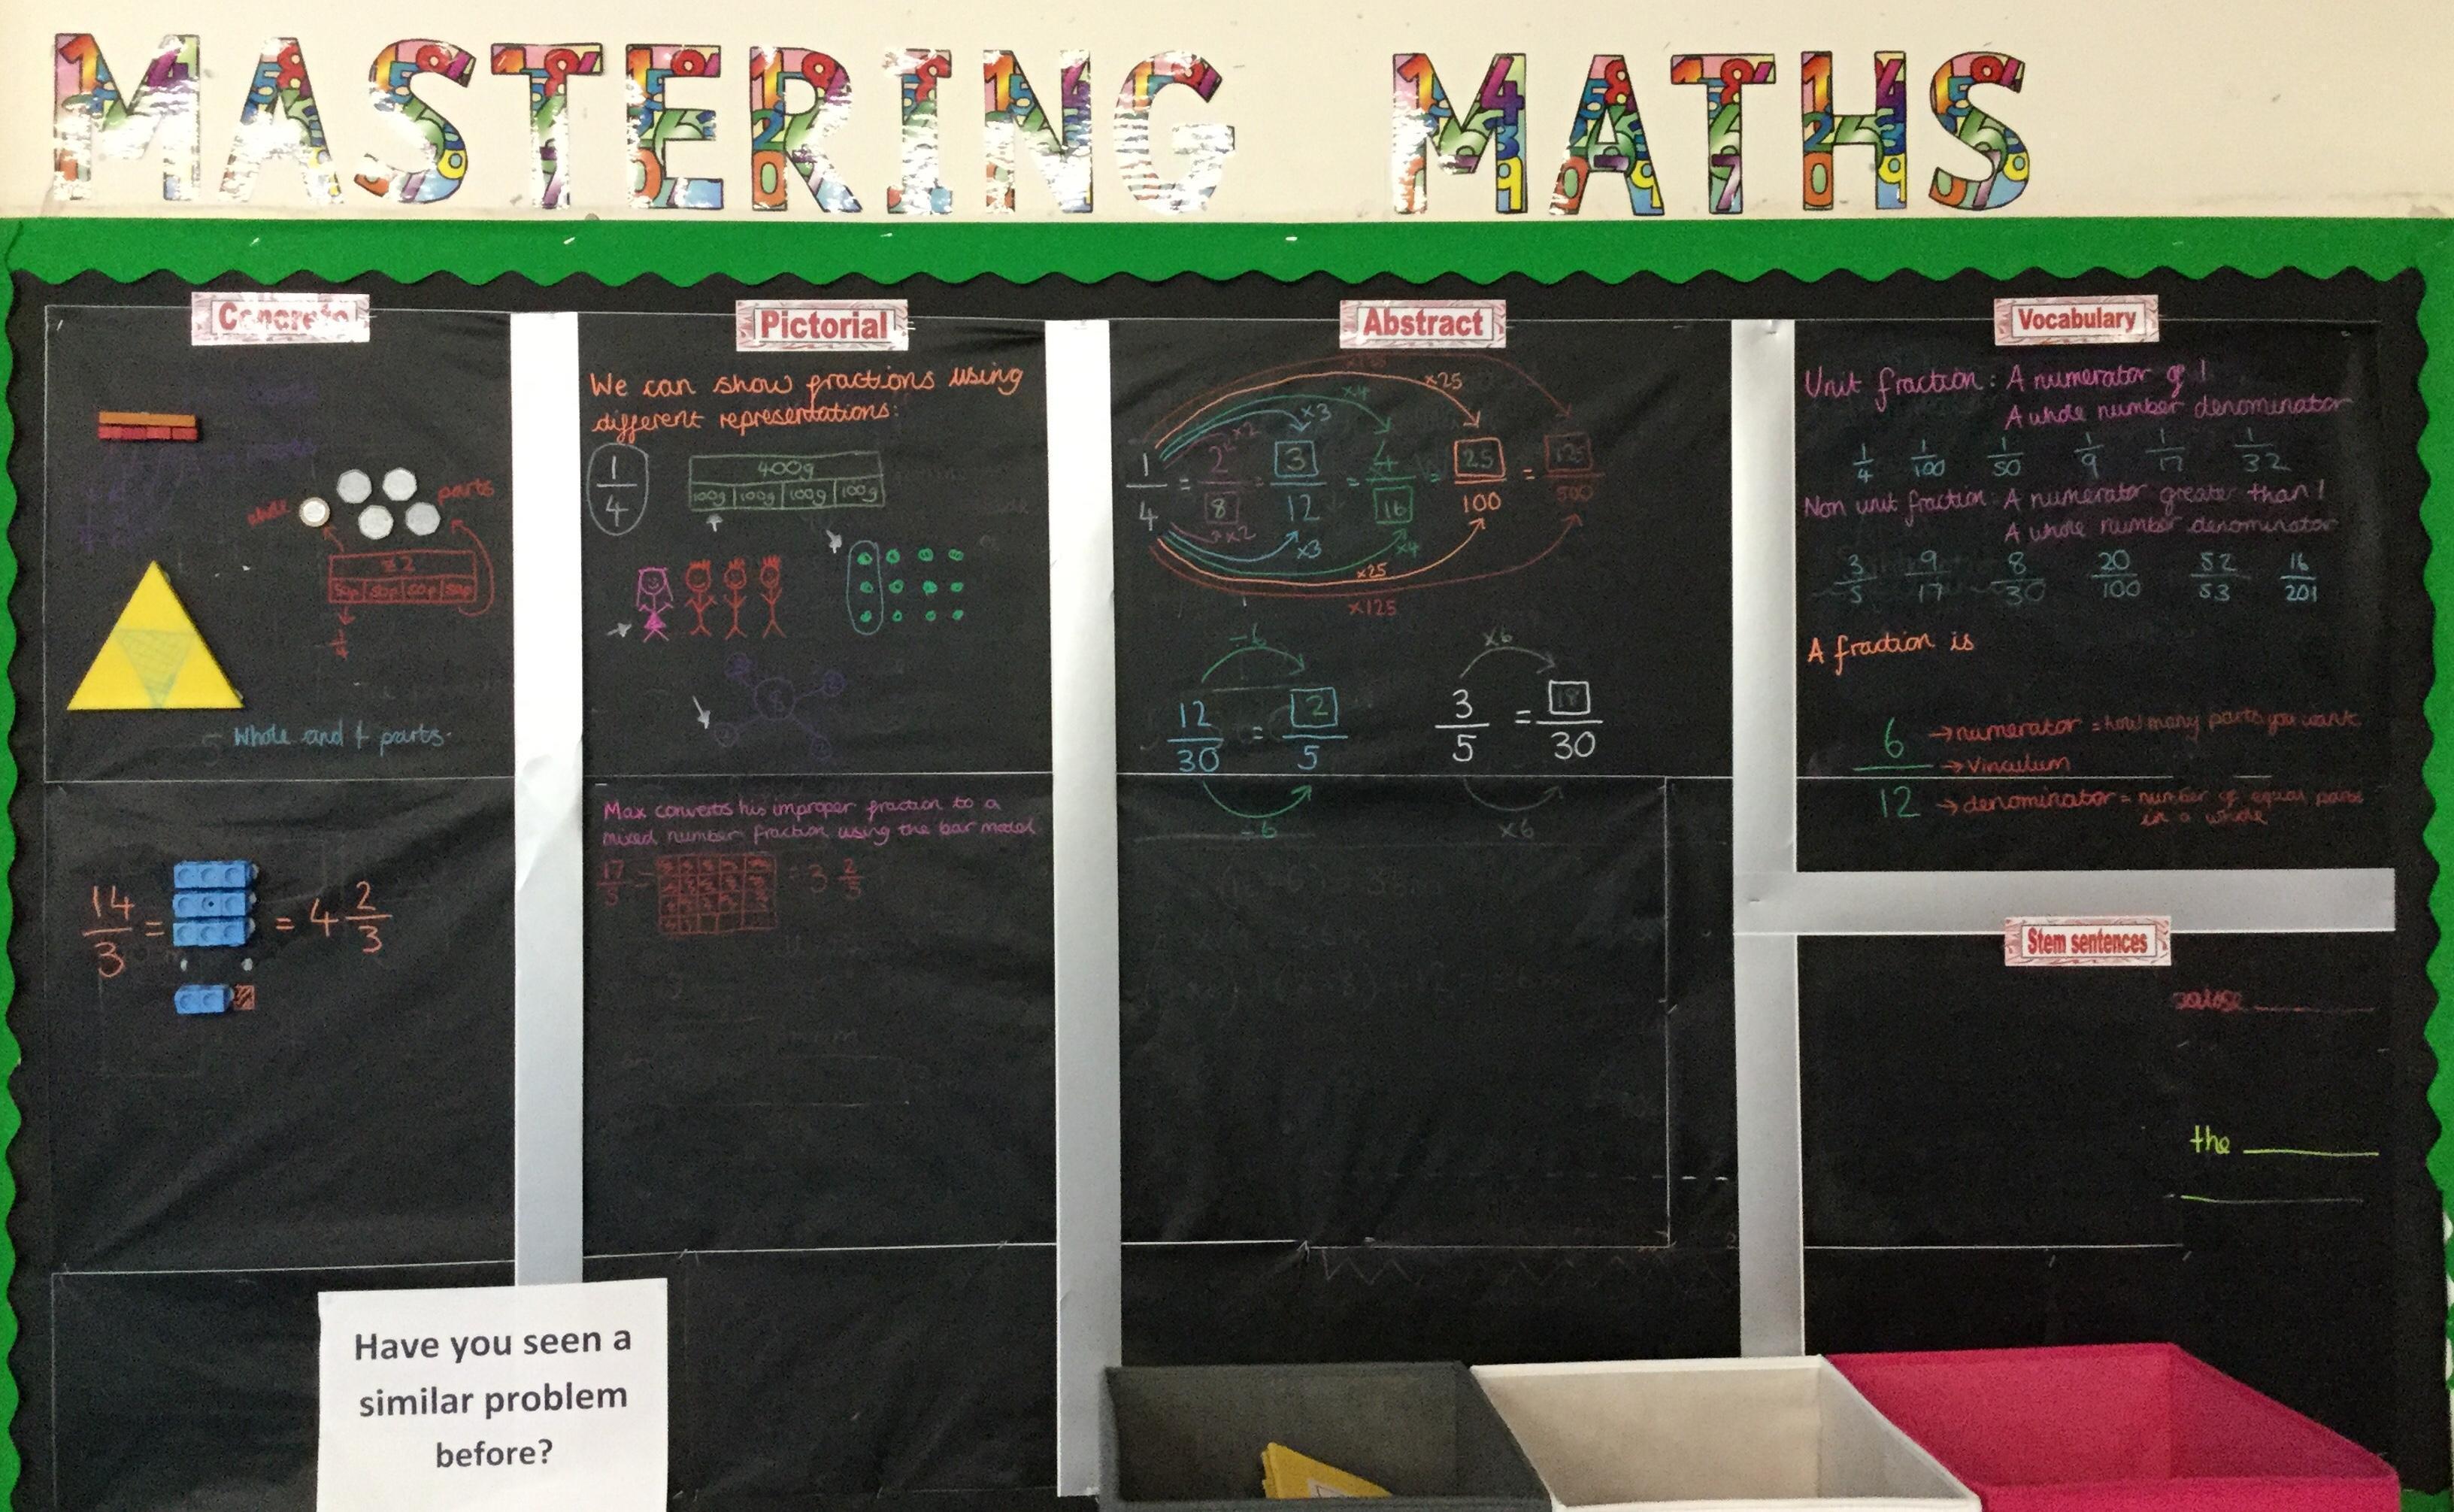 MASTERING MATHS
Concrete
whole
parts
£2
50p 50p 50p 50p
1/4
Whole and 4 parts.
14/3 = = 4 2/3
Pictorial
We can show fractions using
different representations:
1/4
400g
100g 100g 100g 100g
Max converts his improper fraction to a
mixed number fraction using the bar model
17/5 = = 3 2/5
Abstract
×25
×4
×3
×2
1/4 = 2/8 = 3/12 = 4/16 = 25/100 = 125/500
×2
×3
×4
×25
×125
-6 ×6
12/30 = 2/5 3/5 = 18/30
-6 ×6
Vocabulary
Unit fraction: A numerator of 1
A whole number denominator
1/4 1/100 1/50 1/9 1/17 1/32
Non unit fraction: A numerator greater than 1
A whole number denominator
3/5 9/17 8/30 20/100 52/53 16/201
A fraction is
6 → numerator = how many parts you want
→ vinculum
12 → denominator = number of equal parts
in a whole
Stem sentences
the
Have you seen a
similar problem
before?